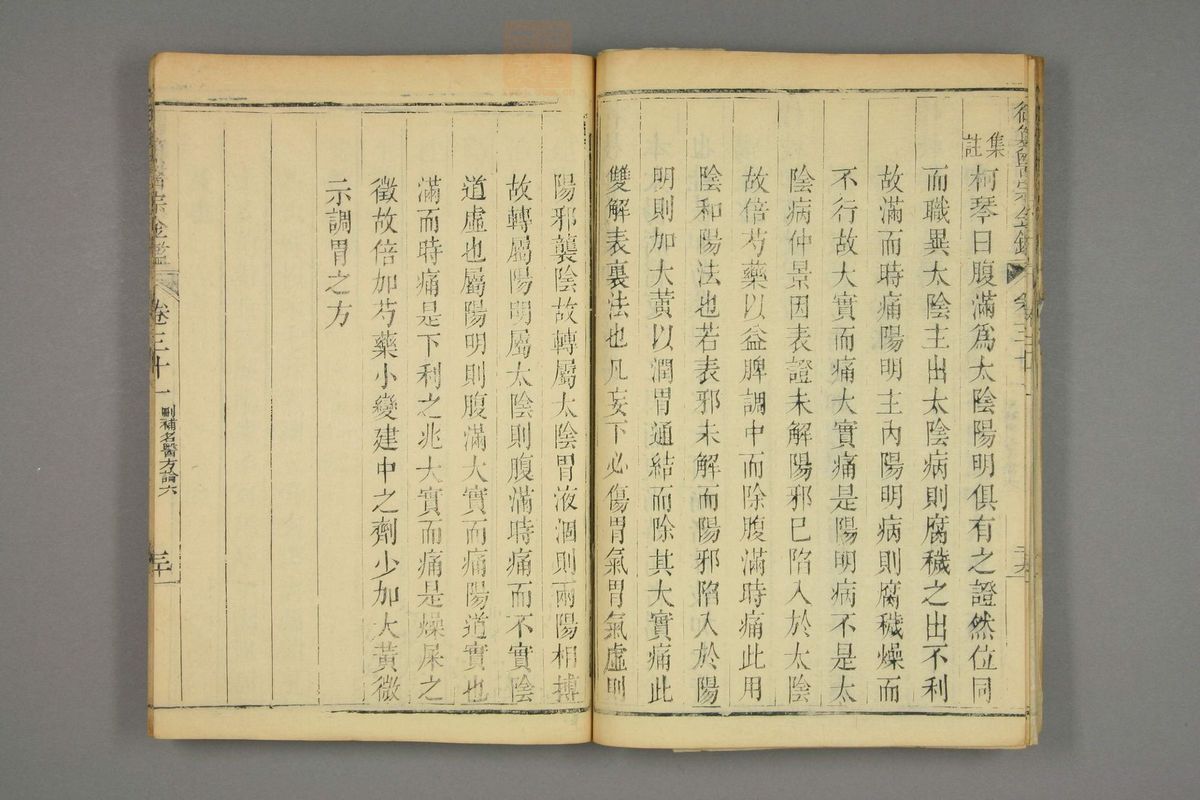 集註 柯琴曰腹滿爲太陰陽明俱有之證然位同
而職異太陰主出太陰病則腐穢之出不利
故滿而時痛陽明主內陽明病則腐穢燥而
不行故大實而痛大實痛是陽明病不是太
陰病仲景因表證未解陽邪已陷入於太陰
故倍芍藥以益脾調中而除腹滿時痛此用
陰和陽法也若表邪未解而陽邪陷入於陽
明則加大黃以潤胃通結而除其大實痛此
雙解表裏法也凡妄下必傷胃氣胃氣虛則
陽邪襲陰故轉屬太陰胃液涸則兩陽相搏
故轉屬陽明屬太陰則腹滿時痛而不實陰
道虛也屬陽明則腹滿大實而痛陽道實也
滿而時痛是下利之兆大實而痛是燥屎之
徵故倍加芍藥小變建中之劑少加大黃微
示調胃之方
醫宗金鑑 卷三十一 刪補名醫方論六 三十